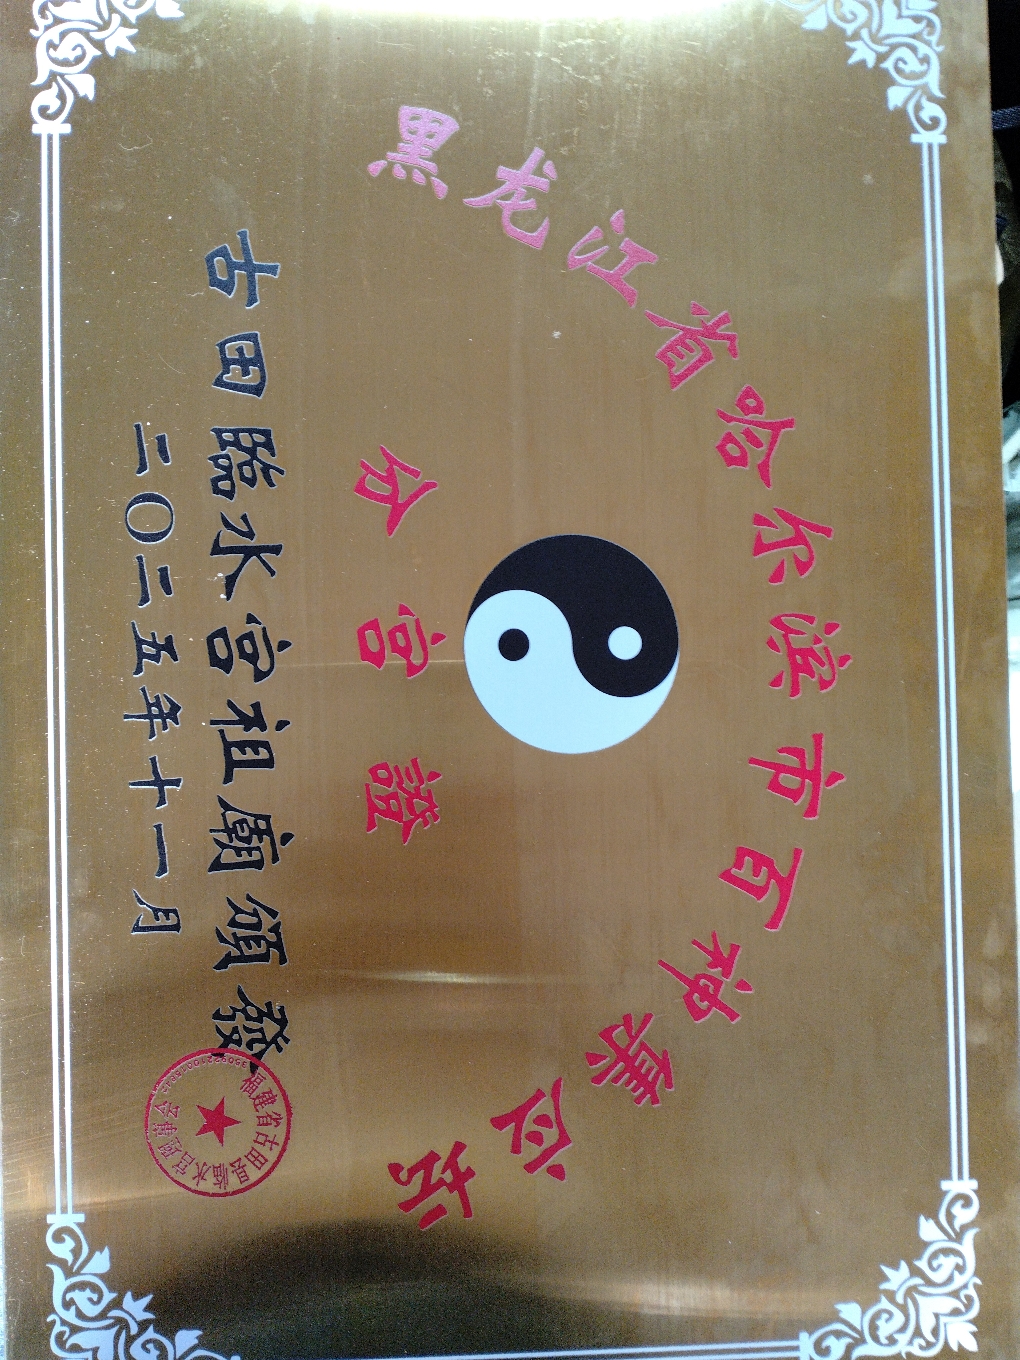 黑龙江省哈尔滨市百神坛
分宫證
古田臨水宮祖廟頒發
二〇二五年十一月
福建省古田县临水宫